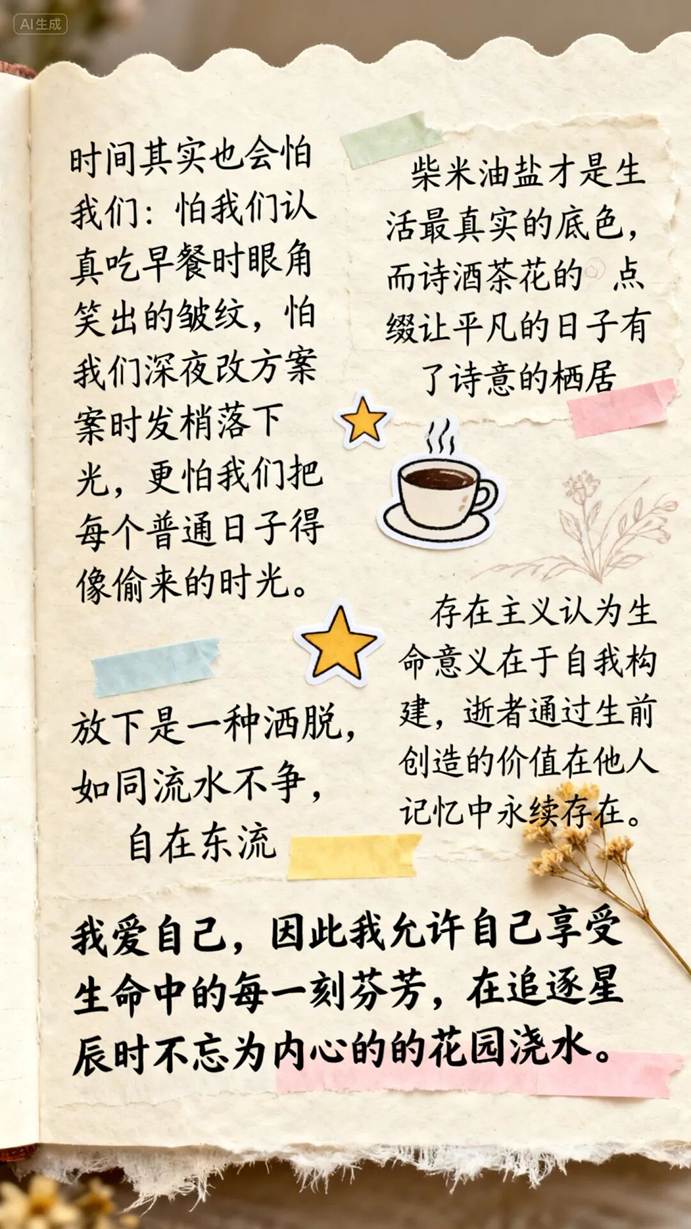 AI生成
时间其实也会怕
我们：怕我们认
真吃早餐时眼角
笑出的皱纹，怕
我们深夜改方案
案时发梢落下
光，更怕我们把
每个普通日子得
像偷来的时光。
柴米油盐才是生
活最真实的底色，
而诗酒茶花的 点
缀让平凡的日子有
了诗意的栖居
存在主义认为生
命意义在于自我构
建，逝者通过生前
创造的价值在他人
记忆中永续存在。
放下是一种洒脱，
如同流水不争，
自在东流
我爱自己，因此我允许自己享受
生命中的每一刻芬芳，在追逐星
辰时不忘为内心的的花园浇水。